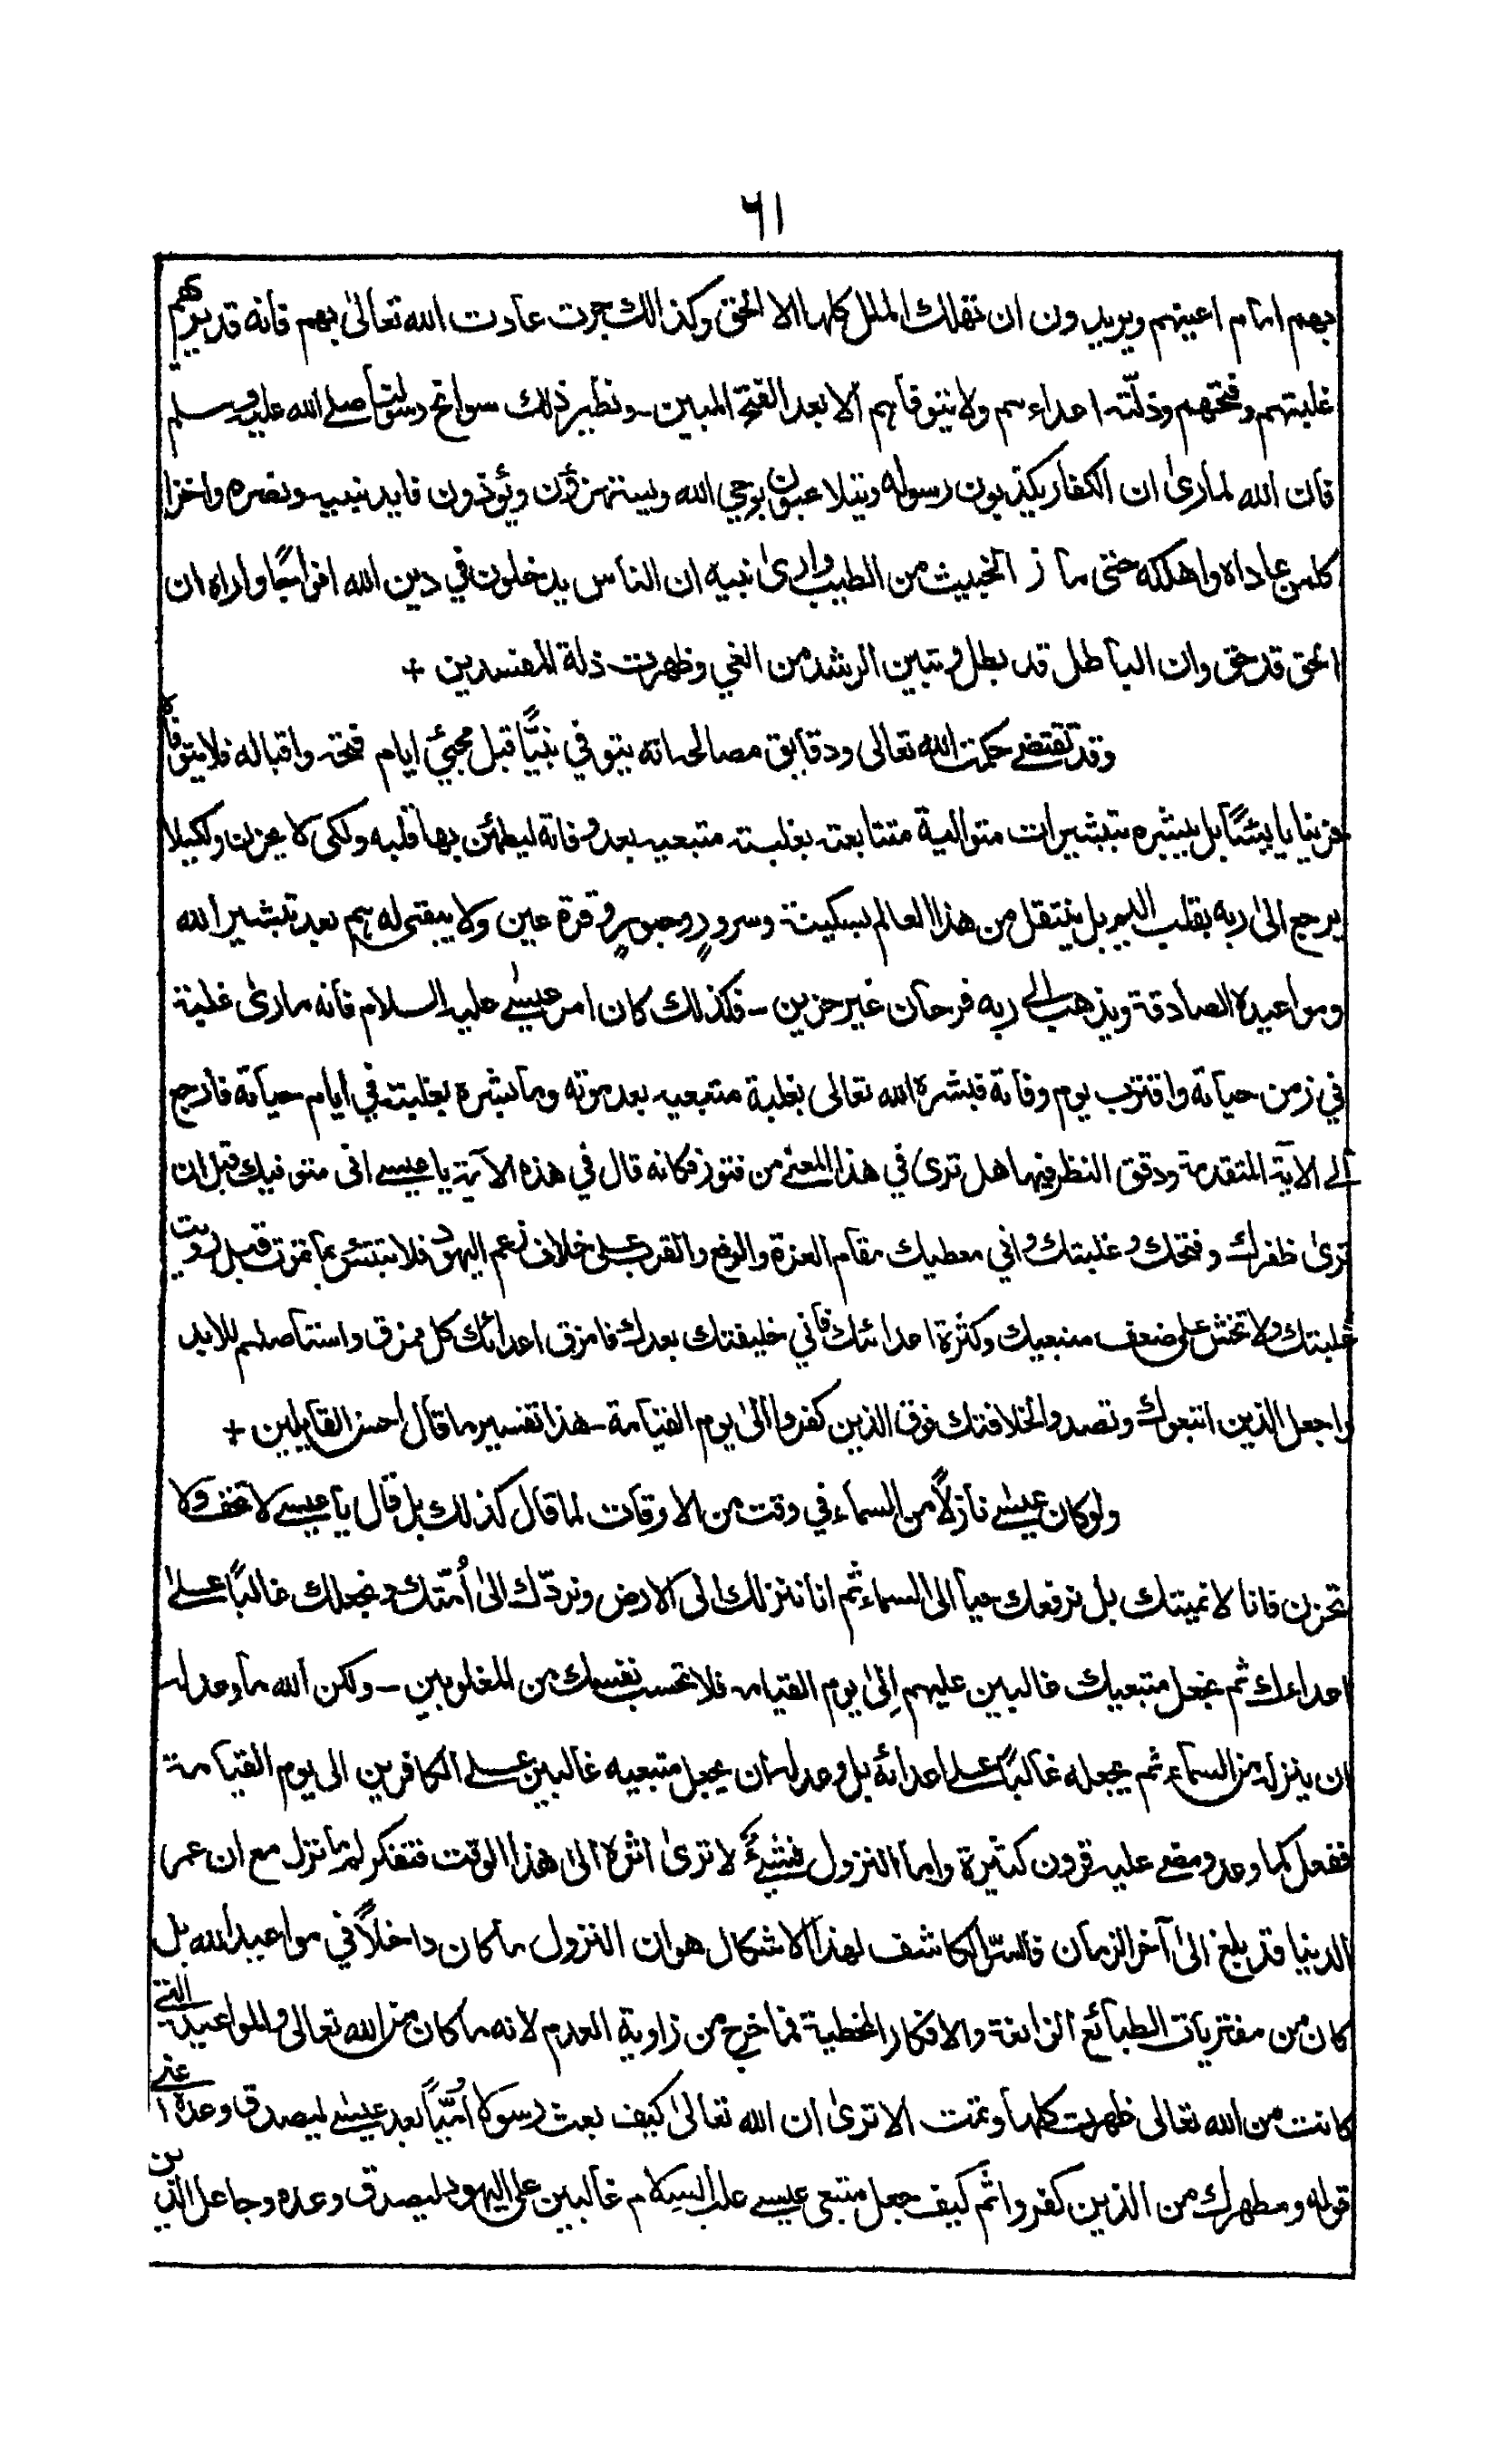 ٦١
بهم امام اعينهم ويريدون ان تهلك الملل كلها الا الحق وكذالك جرت عادت الله تعالىٰ بهم فانه قد يريهم
غلبتهم وفتحهم وذلّة اعداءهم ولا يتوفاهم الا بعد الفتح المبين ـ ونظير ذلك سوانح رسولنا صلے الله عليه وسلم
فان الله لما رىٰ ان الكفار يكذبون رسوله ويتلاعبون بوحي الله ويستهزؤن ويؤذون فايد نبيه ونصره واخزا
كلمن عاداه واهلكه حتى ماز الخبيث من الطيب وارىٰ نبيه ان الناس يدخلون في دين الله افواجًا واراه ان
الحق قد حق وان الباطل قد بطل وتبين الرشد من الغي وظهرت ذلة المفسدين +
وقد تقتضے حكمت الله تعالى ودقايق مصالحه انه يتوفي نبيًّا قبل مجيئ ايام فتحه واقباله فلا يتوفاه
حزينا يائيسًا بل يبشره بتبشيرات متوالية متتابعة بغلبة متبعيه بعد وفاته ليطمئن بها قلبه ولكى لا يحزن ولكيلا
يرجع الىٰ ربه بقلب اليم بل ينتقل من هذا العالم بسكينة وسرورٍ وحبورٍ وقرة عين ولا يبقى له هم بعد تبشير الله
ومواعيده الصادقة ويذهب الى ربه فرحان غير حزين ـ فكذلك كان امر عيسىٰ عليه السلام فانه ما رىٰ غلبة
في زمن حياته واقترب يوم وفاته فبشره الله تعالى بغلبة متبعيه بعد موته وما بشره بغلبته في ايام حياته فارجع
الے الاية المتقدمة ودقق النظر فيها هل ترى في هذا المعنے من فتور فكانه قال في هذه الآية يا عيسے انى متوفيك قبل ان
ترىٰ ظفرك وفتحك وغلبتك واني معطيك مقام العزة والرفع والقرب على خلاف زعم اليهود فلا تبتئس بما تموت قبل رويت
غلبتك ولا تخش على ضعف متبعيك وكثرة اعدائك فاني خليفتك بعدك فامزق اعدائك كل ممزق واستاصلهم للابد
واجعل الذين اتبعوك وتصدوا لخلافتك فوق الذين كفروا الىٰ يوم القيامة ـ هذا تفسير ما قال احسن القايلين +
ولو كان عيسىٰ نازلًا من السماء في وقت من الاوقات لما قال كذلك بل قال يا عيسے لا تخف ولا
تحزن فانا لا نميتك بل نرفعك حيا الى السماء ثم انا ننزلك الى الارض ونردّك الىٰ اُمّتك ونجعلك غالبًا علىٰ
اعداءك ثم نجعل متبعيك غالبين عليهم اِلىٰ يوم القيامه فلا تحسب نفسك من المغلوبين ـ ولكن الله ما وعد له
ان ينزله من السماء ثم يجعله غالبًا على اعدائه بل وعد له ان يجعل متبعيه غالبين علے الكافرين الى يوم القيامة
ففعل كما وعد ومضے عليه قرون كثيرة واما النزول فشيءٌ لا ترىٰ اثره الىٰ هذا الوقت فتفكر لم ما نزل مع ان عمر
الدنيا قد بلغ الىٰ آخر الزمان فالسّر الكاشف لهذا الاشكال هو ان النزول ما كان داخلًا في مواعيد الله بل
كان من مفتريات الطبائع الزائغة والافكار المخطية فما خرج من زاوية العدم لانه ما كان من الله تعالى والمواعيد التي
كانت من الله تعالى ظهرت كلها وتمت الا ترىٰ ان الله تعالىٰ كيف بعث رسولا اُمّيّاً بعد عيسىٰ ليصدق وعده اعنے
قوله ومطهرك من الذين كفروا ثم كيف جعل متبعى عيسے عليه السلام غالبين على اليهود ليصدق وعده وجاعل الذين